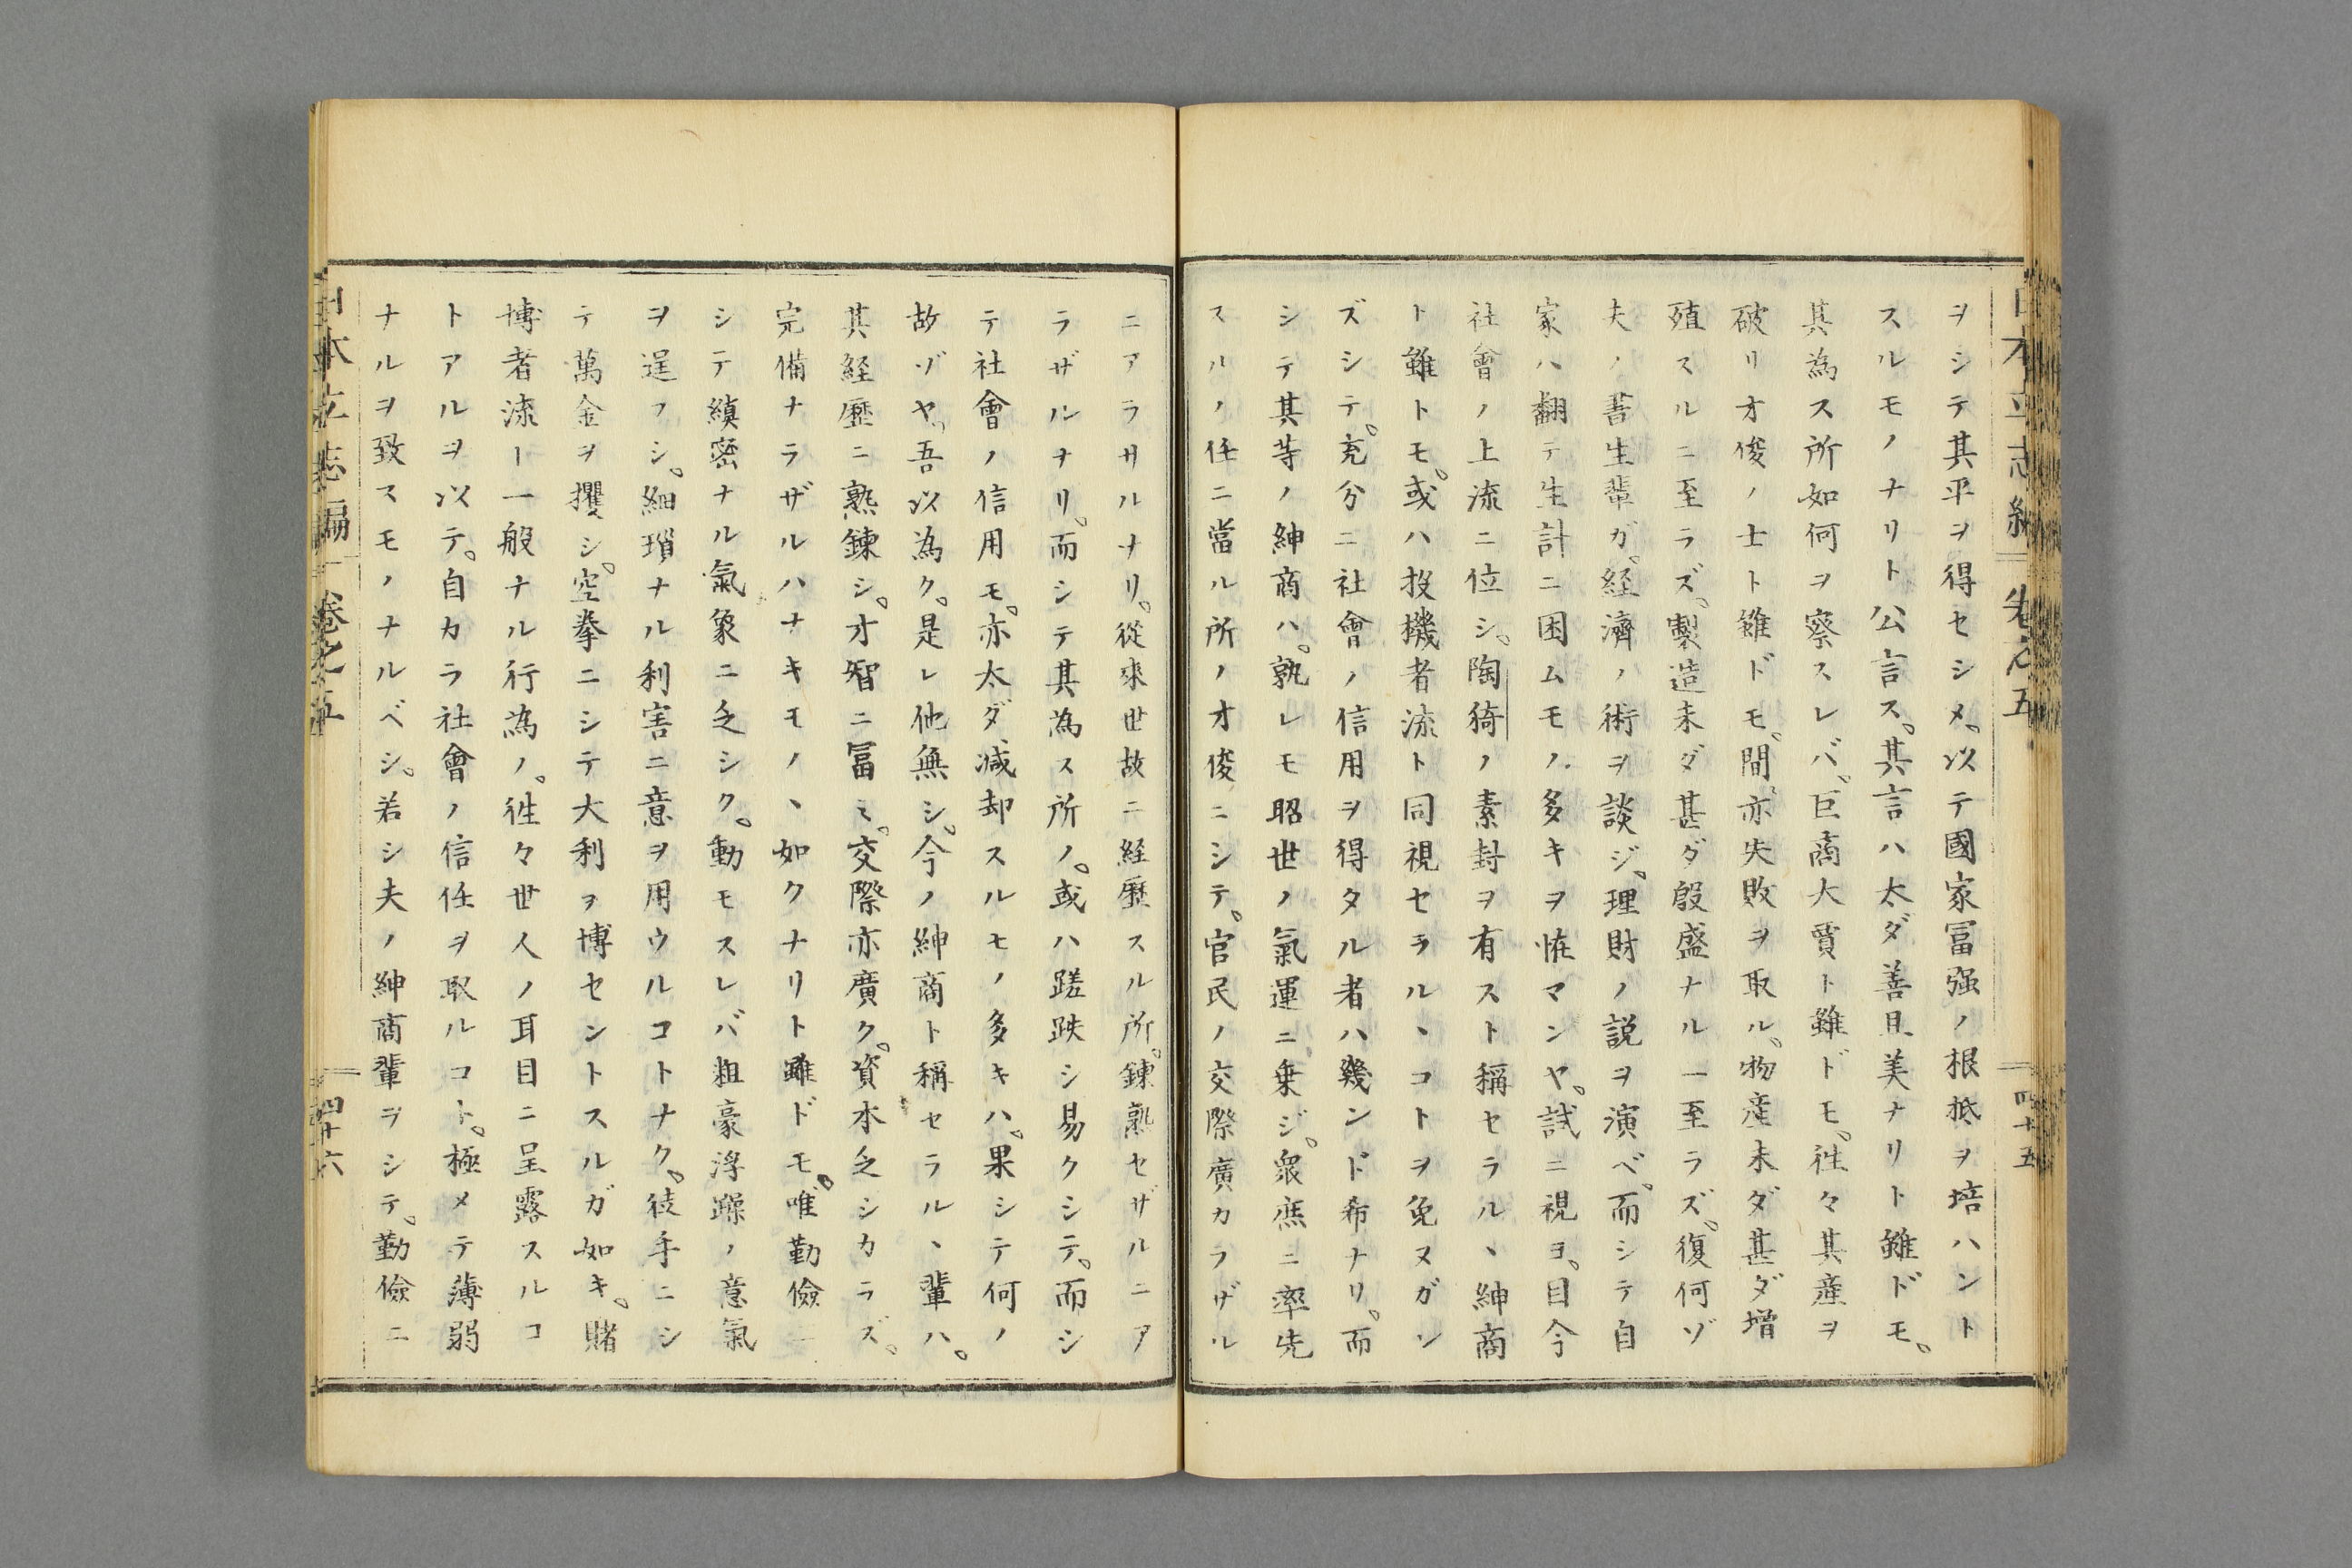 日本立志編 卷之五 四十五
ヲシテ其平ヲ得セシメ、以テ國家冨强ノ根柢ヲ培ハント
スルモノナリト公言ス。其言ハ太ダ善且美ナリト雖ドモ。
其為ス所如何ヲ察スレバ、巨商大賈ト雖ドモ。徃々其産ヲ
破リ才俊ノ士ト雖ドモ。間、亦失敗ヲ取ル。物産未ダ甚ダ增
殖スルニ至ラズ、製造未ダ甚ダ殷盛ナルニ至ラズ。復何ゾ
夫ノ書生輩ガ。経濟ノ術ヲ談ジ、理財ノ説ヲ演ベ、而シテ自
家ハ翻テ生計ニ困ムモノ多キヲ恠マンヤ。試ニ視ヨ、目今
社會ノ上流ニ位シ。陶猗ノ素封ヲ有スト稱セラルヽ紳商
ト雖トモ。或ハ投機者流ト同視セラルヽコトヲ免ヌガレ
ズシテ。充分ニ社會ノ信用ヲ得タル者ハ幾ンド希ナリ。而
シテ其等ノ紳商ハ。孰レモ昭世ノ氣運ニ乗ジ。衆庶ニ率先
スルノ任ニ當ル所ノ才俊ニシテ。官民ノ交際廣カラザル
ニアラサルナリ。從來世故ニ経歷スル所。鍊熟セザルニア
ラザルナリ。而シテ其為ス所ノ。或ハ蹉跌シ易クシテ。而シ
テ社會ノ信用モ。亦太ダ減却スルモノ多キハ。果シテ何ノ
故ゾヤ。吾以為ク。是レ他無シ。今ノ紳商ト稱セラルヽ輩ハ。
其経歷ニ熟鍊シ。才智ニ冨ミ。交際亦廣ク。資本乏シカラズ。
完備ナラザルハナキモノヽ如クナリト雖ドモ。唯勤儉ニ
シテ縝密ナル氣象ニ乏シク。動モスレバ粗豪浮躁ノ意氣
ヲ逞フシ。細瑣ナル利害ニ意ヲ用ウルコトナク。徒手ニシ
テ萬金ヲ攫シ。空拳ニシテ大利ヲ博セントスルガ如キ。賭
博者流ト一般ナル行為ノ。徃々世人ノ耳目ニ呈露スルコ
トアルヲ以テ。自カラ社會ノ信任ヲ取ルコト。極メテ薄弱
ナルヲ致スモノナルベシ。若シ夫ノ紳商輩ヲシテ。勤儉ニ
日本立志編 卷之五 四十六